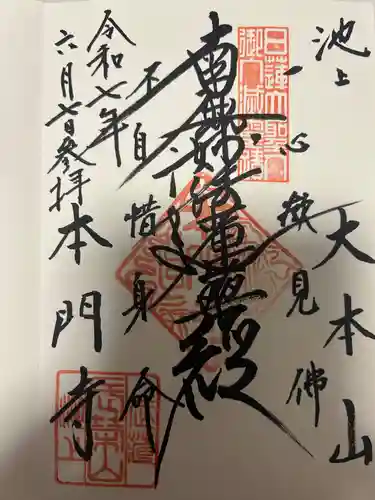 池上
大本山
一心欲見佛
南無妙法蓮華経
不自惜身命
令和七年
六月七日参拝
本門寺
日蓮大聖人
御入滅霊場